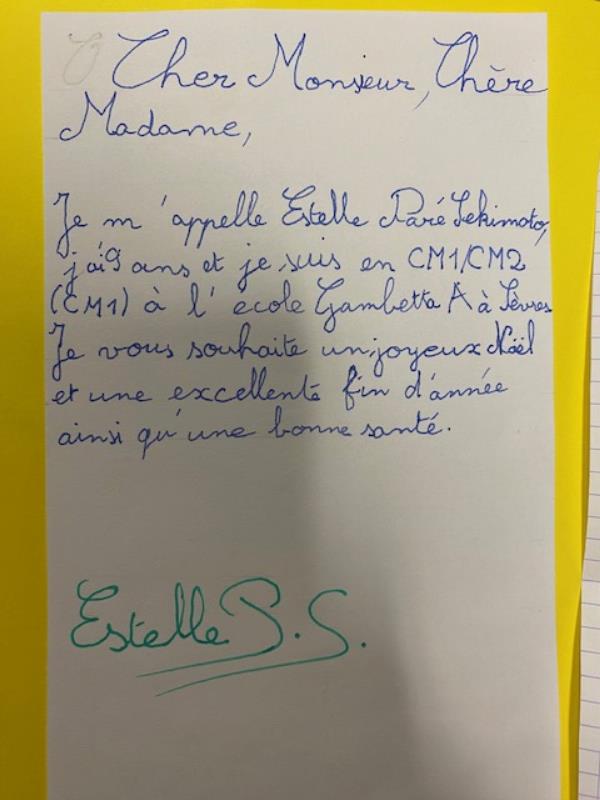 Cher Monsieur, Chère
Madame,
Je m'appelle Estelle Paré Sekimoto,
j'ai 9 ans et je suis en CM1/CM2
(CM1) à l'ecole Gambetta A à Sèvres
Je vous souhaite un joyeux Noël
et une excellente fin d'année
ainsi qu'une bonne santé.
Estelle P.S.